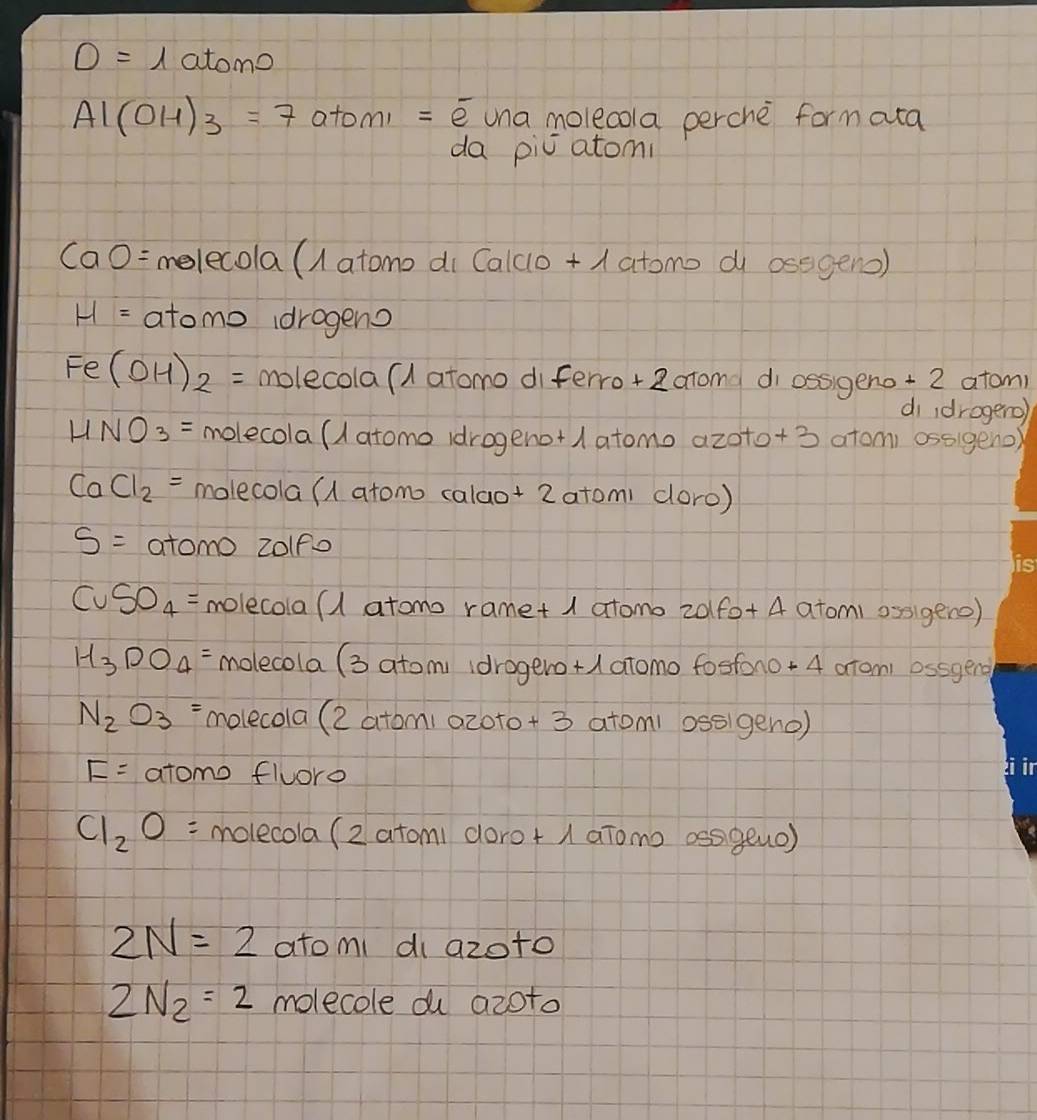 O = 1 atomo
Al(OH)3 = 7 atomi = è una molecola perchè formata
da più atomi
CaO = molecola (1 atomo di Calcio + 1 atomo di ossigeno)
H = atomo idrogeno
Fe(OH)2 = molecola (1 atomo di ferro + 2 atomi di ossigeno + 2 atomi
di idrogeno)
HNO3 = molecola (1 atomo idrogeno + 1 atomo azoto + 3 atomi ossigeno)
CaCl2 = molecola (1 atomo calcio + 2 atomi cloro)
S = atomo zolfo
CuSO4 = molecola (1 atomo rame + 1 atomo zolfo + 4 atomi ossigeno)
H3PO4 = molecola (3 atomi idrogeno + 1 atomo fosforo + 4 atomi ossigeno
N2O3 = molecola (2 atomi azoto + 3 atomi ossigeno)
F = atomo fluoro
Cl2O = molecola (2 atomi cloro + 1 atomo ossigeno)
2N = 2 atomi di azoto
2N2 = 2 molecole di azoto